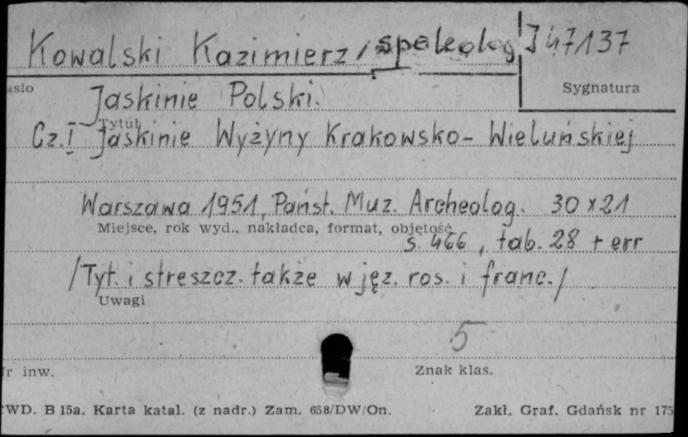 Kowalski Kazimierz, speleolog J 47137
asło Sygnatura
Jaskinie Polski.
Tytuł
Cz. I Jaskinie Wyżyny Krakowsko-Wieluńskiej
Warszawa 1951, Państ. Muz. Archeolog. 30x21
Miejsce, rok wyd., nakładca, format, objętość
s. 466, tab. 28 + err
/Tyt. i streszcz. także w jęz. ros. i franc./
Uwagi
5
r inw. Znak klas.
WD. B 15a. Karta katal. (z nadr.) Zam. 658/DW/On. Zakł. Graf. Gdańsk nr 175